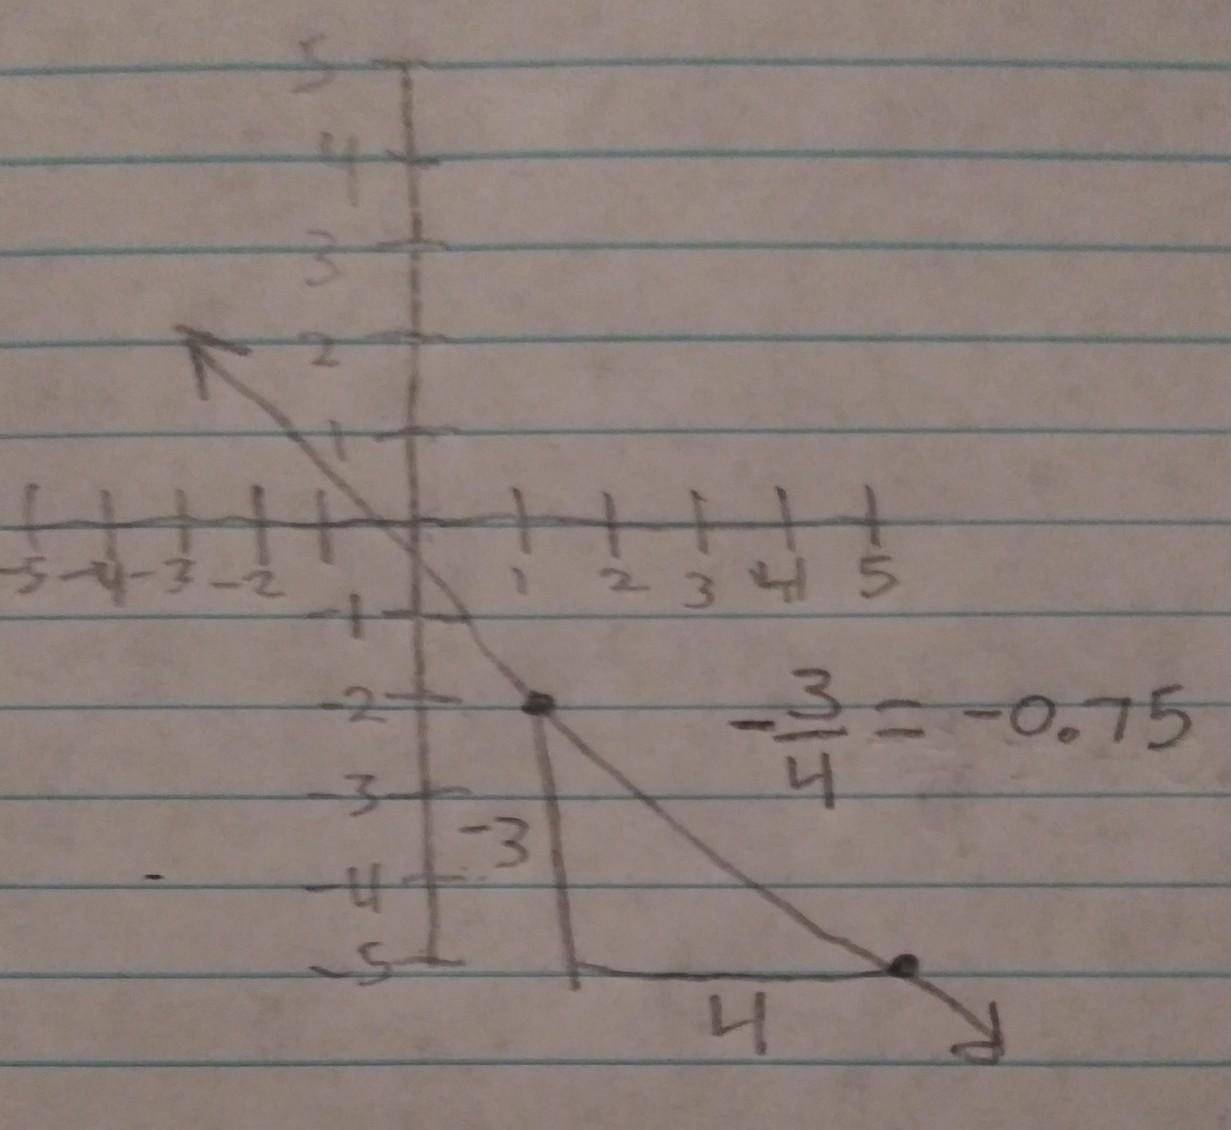 5
4
3
2
1
-5 -4 -3 -2 1 2 3 4 5
-1
-2
-3/4 = -0.75
-3
-3
-4
-5
4